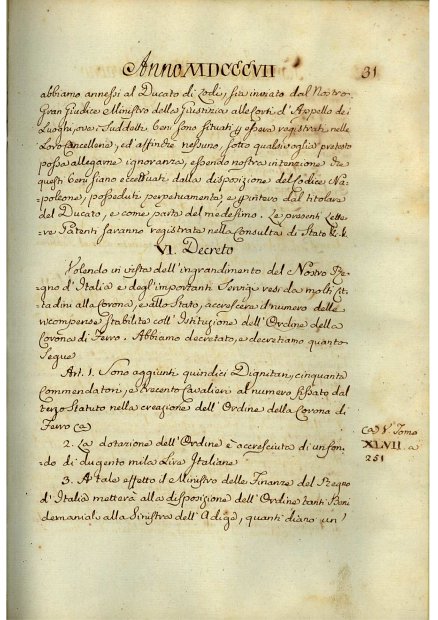 Anno MDCCCVII
31
abbiamo annessi al Ducato di Lodi, sia inviato dal Nostro
Gran Giudice Ministro della Giustizia alle Corti d'Appello dei
Luoghi, ove i Suddetti beni sono situati p essere registrati nelle
Loro Cancellerie, ed affinchè nessuno, sotto qualsivoglia pretesto
possa allegarne ignoranza, essendo nostra intenzione che
questi beni siano eccettuati dalla disposizione del Codice Na-
poleone, posseduti perpetuamente, e p intero dal titolare
del Ducato, e come parte del medesimo. Le presenti Lette-
re Patenti saranno registrate nella Consulta di Stato
VI. Decreto
Volendo in vista dell'ingrandimento del Nostro Re-
gno d'Italia e degl'importanti Servigi resi da molti Cit-
tadini alla Corona, e allo Stato, accrescere il numero delle
ricompense stabilite coll'Istituzione dell'Ordine della
Corona di Ferro. Abbiamo decretato, e decretiamo quanto
Segue
Art. 1. Sono aggiunti quindici Dignitarj, cinquanta
Commendatori, e trecento Cavalieri al numero fissato dal
terzo Statuto nella creazione dell'Ordine della Corona di
Ferro Ca
2. La dotazione dell'Ordine è accresciuta di un fon-
do di dugento mila Lire Italiane
3. A tale effetto il Ministro delle Finanze del Regno
d'Italia metterà alla disposizione dell'Ordine tanti Beni
demaniali alla Sinistra dell'Adige, quanti diano un'
Ca V. Tomo
XLVII. a
251